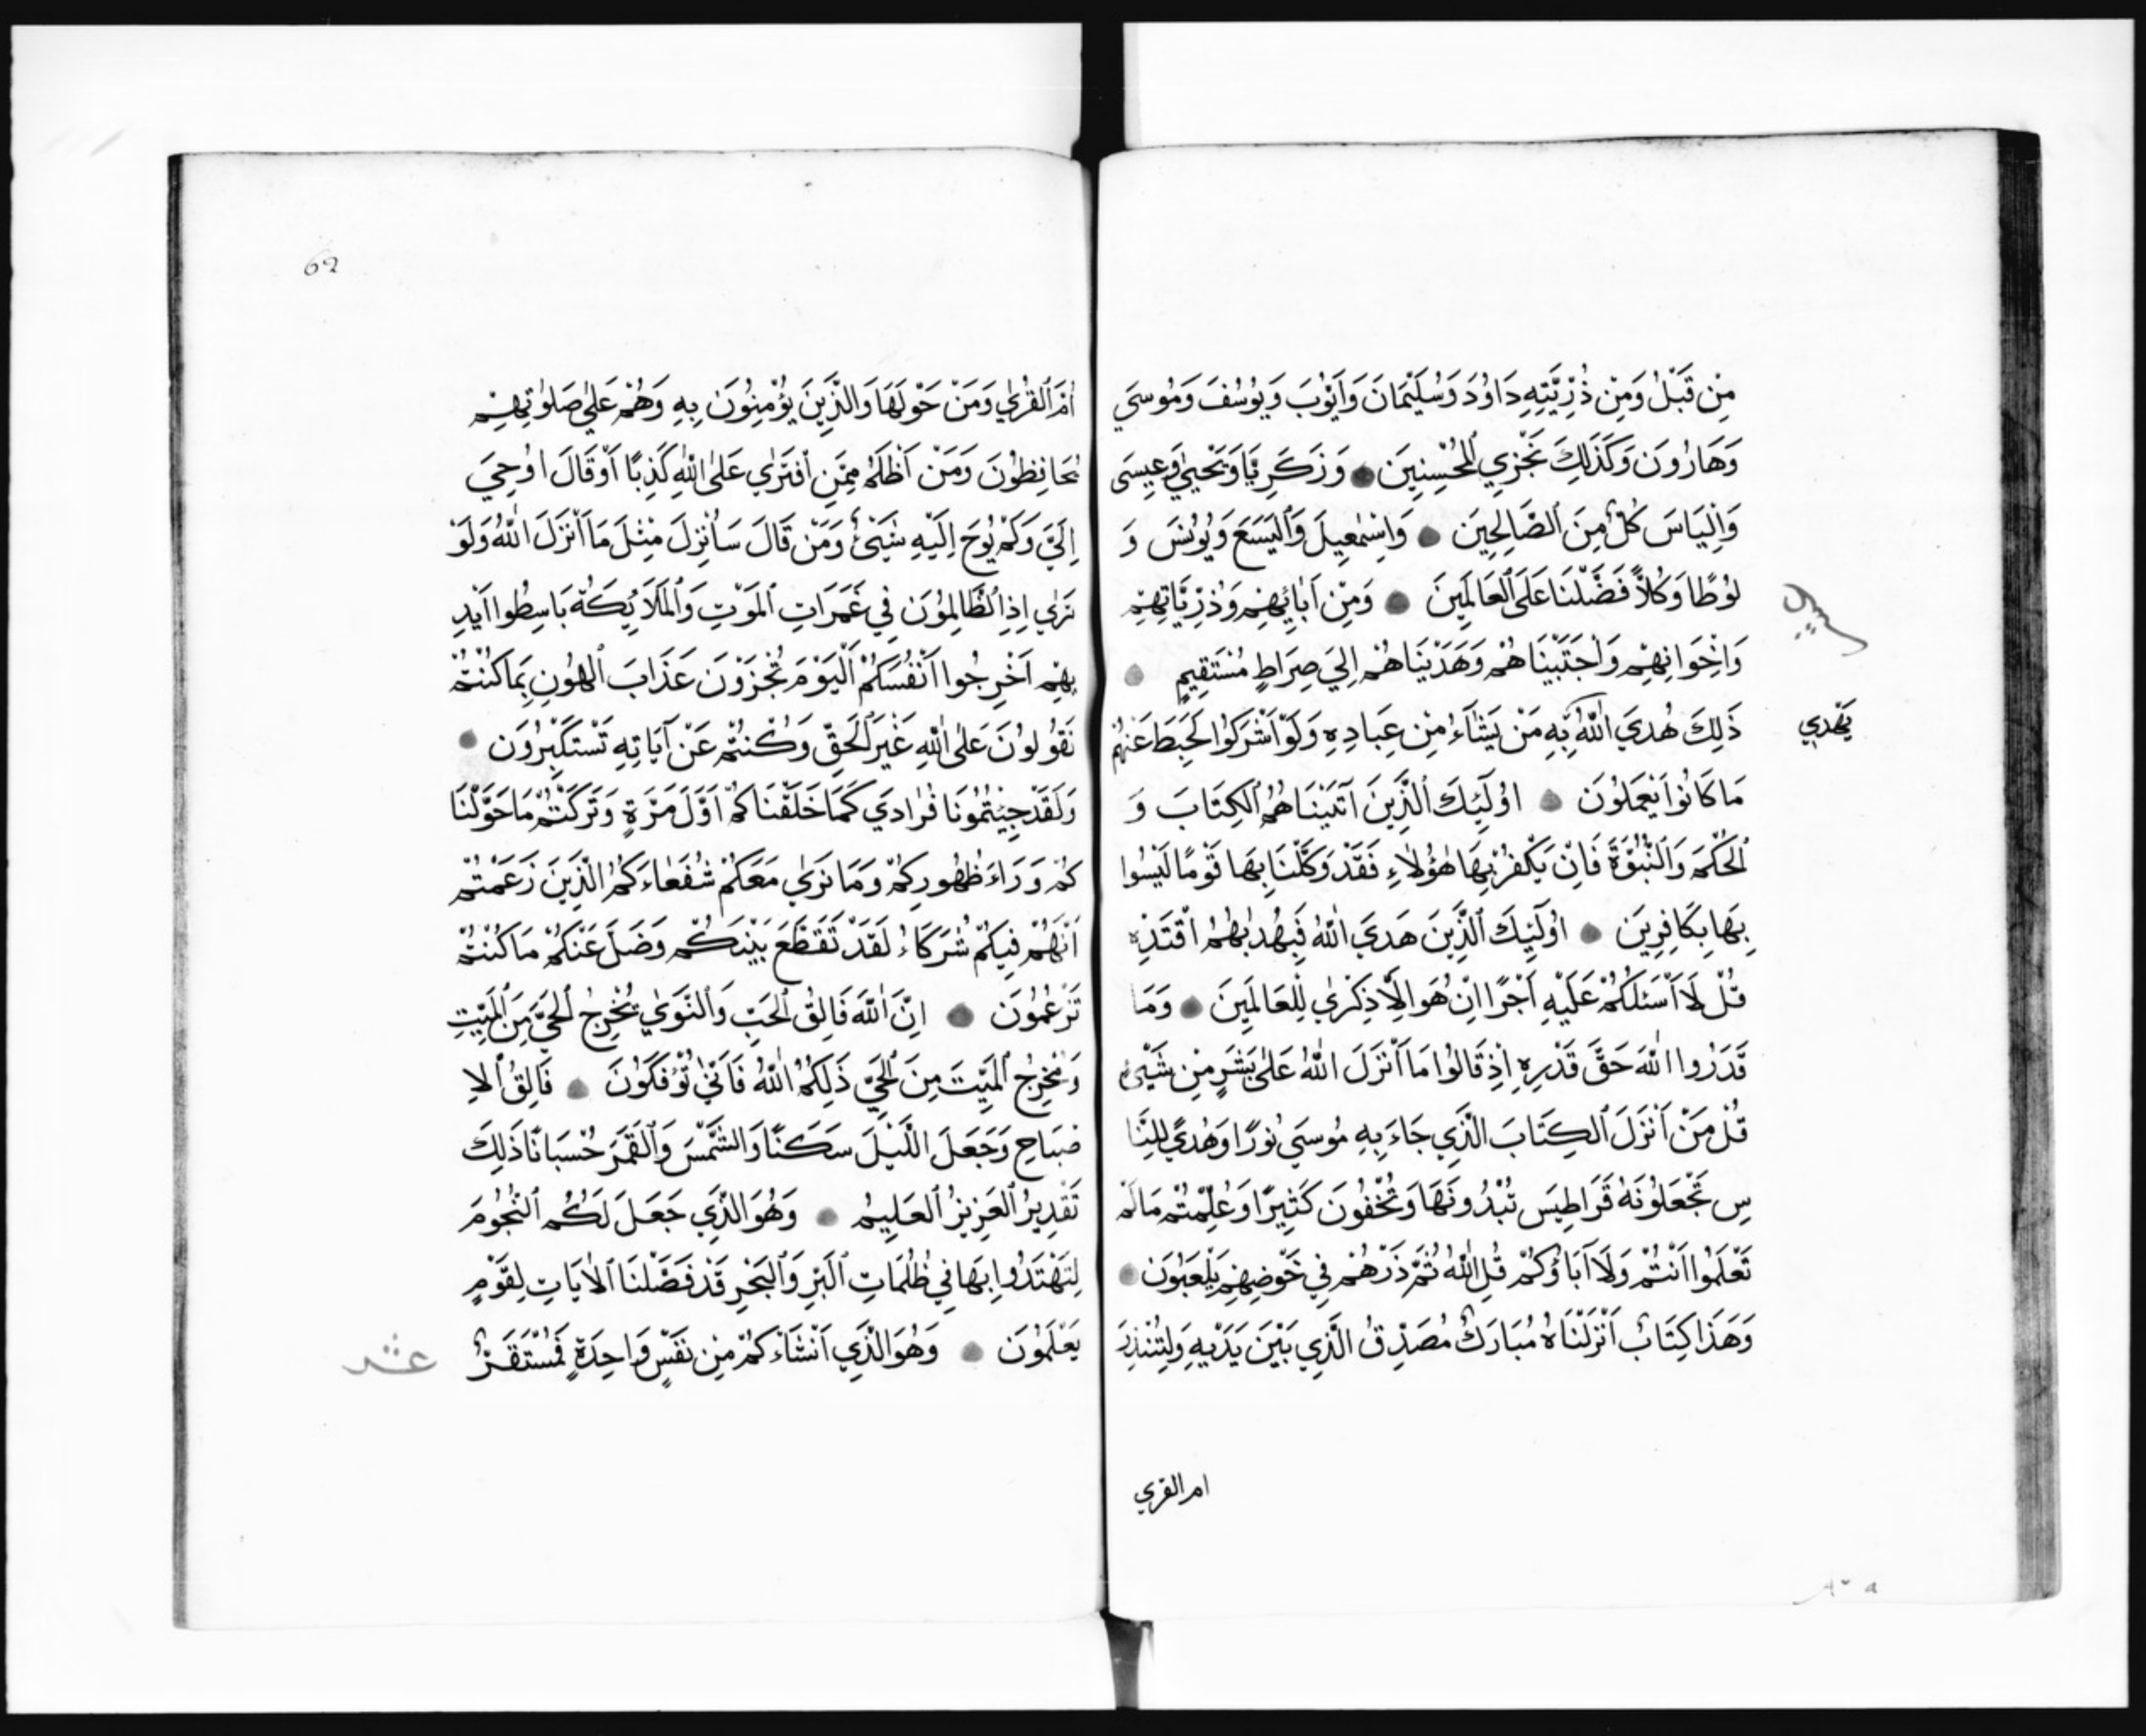 مِنْ قَبْلُ وَمِنْ ذُرِّيَّتِهِ دَاوُدَ وَسُلَيْمَانَ وَاَيُّوْبَ وَيُوْسُفَ وَمُوْسَي
وَهَارُوْنَ وَكَذٰلِكَ نَجْزِي الْمُحْسِنِيْنَ وَزَكَرِيَّا وَيَحْيٰي وَعِيسَى
وَاِلْيَاسَ كُلٌّ مِنَ الصَّالِحِيْنَ وَاِسْمٰعِيلَ وَالْيَسَعَ وَيُوْنُسَ وَ
لُوْطًا وَكُلًّا فَضَّلْنَا عَلَى الْعَالَمِيْنَ وَمِنْ اٰبَائِهِمْ وَذُرِّيَّاتِهِمْ
وَاِخْوَانِهِمْ وَاجْتَبَيْنَاهُمْ وَهَدَيْنَاهُمْ اِلَي صِرَاطٍ مُسْتَقِيْمٍ
يَهْدِي
ذَلِكَ هُدَي اللّٰهِ بِهِ مَنْ يَشَاءُ مِنْ عِبَادِهِ وَلَوْ اَشْرَكُوْا لَحَبِطَ عَنْهُمْ
مَا كَانُوْا يَعْمَلُوْنَ اُولَئِكَ الَّذِيْنَ آتَيْنَاهُمُ الْكِتَابَ وَ
الْحُكْمَ وَالنُّبُوَّةَ فَاِنْ يَكْفُرْ بِهَا هٰؤُلَاءِ فَقَدْ وَكَّلْنَا بِهَا قَوْمًا لَيْسُوا
بِهَا بِكَافِرِيْنَ اُولَئِكَ الَّذِيْنَ هَدَي اللّٰهُ فَبِهُدٰيهُمُ اقْتَدِهْ
قُلْ لَا اَسْئَلُكُمْ عَلَيْهِ اَجْرًا اِنْ هُوَ اِلَّا ذِكْرٰي لِلْعَالَمِيْنَ وَمَا
قَدَرُوا اللّٰهَ حَقَّ قَدْرِهِ اِذْ قَالُوْا مَا اَنْزَلَ اللّٰهُ عَلٰى بَشَرٍ مِنْ شَيْئٍ
قُلْ مَنْ اَنْزَلَ الْكِتَابَ الَّذِي جَاءَ بِهِ مُوْسَي نُوْرًا وَهُدًي لِلنَّا
سِ تَجْعَلُوْنَهُ قَرَاطِيْسَ تُبْدُوْنَهَا وَتُخْفُوْنَ كَثِيْرًا وَعُلِّمْتُمْ مَا لَمْ
تَعْلَمُوا اَنْتُمْ وَلَا آبَاؤُكُمْ قُلِ اللّٰهُ ثُمَّ ذَرْهُمْ فِي خَوْضِهِمْ يَلْعَبُوْنَ
وَهَذَا كِتَابٌ اَنْزَلْنَاهُ مُبَارَكٌ مُصَدِّقُ الَّذِي بَيْنَ يَدَيْهِ وَلِتُنْذِرَ
ام القري
62
اُمَّ الْقُرٰي وَمَنْ حَوْلَهَا وَالَّذِيْنَ يُؤْمِنُوْنَ بِهِ وَهُمْ عَلٰي صَلَوٰتِهِمْ
يُحَافِظُوْنَ وَمَنْ اَظْلَمُ مِمَّنِ افْتَرٰي عَلَى اللّٰهِ كَذِبًا اَوْ قَالَ اُوْحِيَ
اِلَيَّ وَلَمْ يُوْحَ اِلَيْهِ شَيْئٌ وَمَنْ قَالَ سَاُنْزِلُ مِثْلَ مَا اَنْزَلَ اللّٰهُ وَلَوْ
تَرٰي اِذِ الظَّالِمُوْنَ فِي غَمَرَاتِ الْمَوْتِ وَالْمَلَائِكَةُ بَاسِطُوا اَيْدِ
يْهِمْ اَخْرِجُوا اَنْفُسَكُمْ اَلْيَوْمَ تُجْزَوْنَ عَذَابَ الْهُوْنِ بِمَا كُنْتُمْ
تَقُوْلُوْنَ عَلَى اللّٰهِ غَيْرَ الْحَقِّ وَكُنْتُمْ عَنْ آيَاتِهِ تَسْتَكْبِرُوْنَ
وَلَقَدْ جِئْتُمُوْنَا فُرَادَي كَمَا خَلَقْنَاكُمْ اَوَّلَ مَرَّةٍ وَتَرَكْتُمْ مَا خَوَّلْنَا
كُمْ وَرَاءَ ظُهُوْرِكُمْ وَمَا نَرٰي مَعَكُمْ شُفَعَاءَكُمُ الَّذِيْنَ زَعَمْتُمْ
اَنَّهُمْ فِيْكُمْ شُرَكَاءُ لَقَدْ تَقَطَّعَ بَيْنَكُمْ وَضَلَّ عَنْكُمْ مَا كُنْتُمْ
تَزْعُمُوْنَ اِنَّ اللّٰهَ فَالِقُ الْحَبِّ وَالنَّوٰي يُخْرِجُ الْحَيَّ مِنَ الْمَيِّتِ
وَمُخْرِجُ الْمَيِّتَ مِنَ الْحَيِّ ذَلِكُمُ اللّٰهُ فَاَنّٰي تُؤْفَكُوْنَ فَالِقُ الْاِ
صْبَاحِ وَجَعَلَ اللَّيْلَ سَكَنًا وَالشَّمْسَ وَالْقَمَرَ حُسْبَانًا ذَلِكَ
تَقْدِيْرُ الْعَزِيْزُ الْعَلِيْمُ وَهُوَ الَّذِي جَعَلَ لَكُمُ النُّجُوْمَ
لِتَهْتَدُوا بِهَا فِي ظُلُمَاتِ الْبَرِّ وَالْبَحْرِ قَدْ فَصَّلْنَا الْاٰيَاتِ لِقَوْمٍ
يَعْلَمُوْنَ وَهُوَ الَّذِي اَنْشَاَكُمْ مِنْ نَفْسٍ وَاحِدَةٍ فَمُسْتَقَرٌّ
عشر